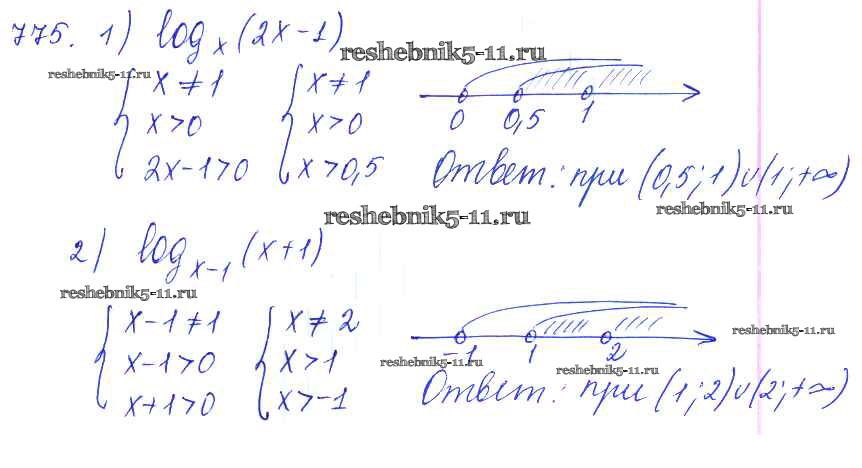 775. 1) log_x (2x-1)
reshebnik5-11.ru
reshebnik5-11.ru
{ x ≠ 1 { x ≠ 1
{ x > 0 { x > 0
{ 2x-1>0 { x > 0,5
0 0,5 1
Ответ: при (0,5; 1)∪(1; +∞)
reshebnik5-11.ru
reshebnik5-11.ru
2) log_{x-1} (x+1)
reshebnik5-11.ru
{ x-1 ≠ 1 { x ≠ 2
{ x-1>0 { x > 1
{ x+1>0 { x > -1
-1 1 2
reshebnik5-11.ru
reshebnik5-11.ru
reshebnik5-11.ru
Ответ: при (1; 2)∪(2; +∞)